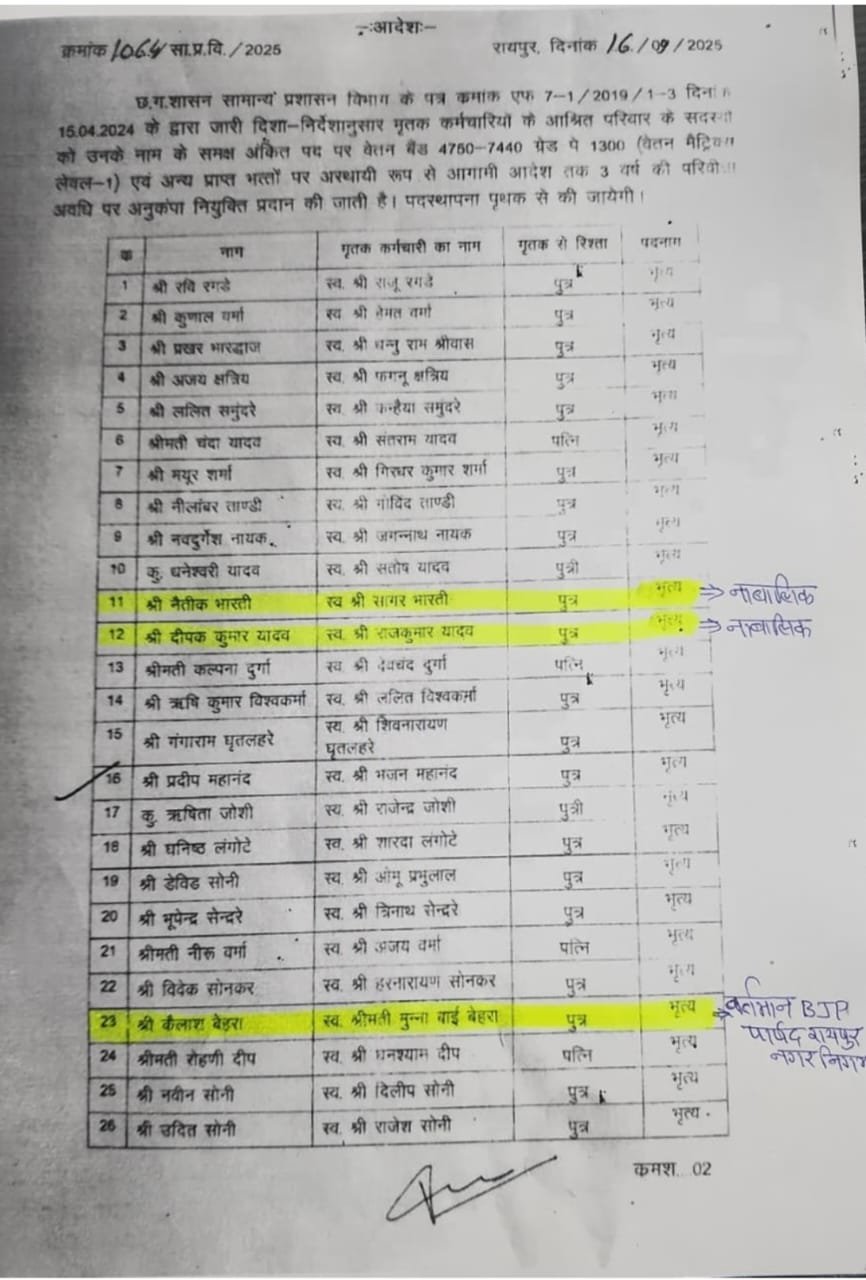 -:आदेशः-
क्रमांक 1064 सा.प्र.वि./2025 रायपुर, दिनांक 16/09/2025
छ.ग.शासन सामान्य प्रशासन विभाग के पत्र कमांक एफ 7-1/2019/1-3
15.04.2024 के द्वारा जारी दिशा-निर्देशानुसार मृतक कर्मचारियों के आश्रित परिवार के
को उनके नाम के समक्ष अंकित पद पर वेतन बैंड 4750-7440 ग्रेड पे 1300 (वेतन
लेवल-1) एवं अन्य प्राप्त भत्तों पर अस्थायी रूप से आगामी आदेश तक 3 वर्ष की
अवधि पर अनुकंपा नियुक्ति प्रदान की जाती है। पदस्थापना पृथक से की जायेगी।
क नाम मृतक कर्मचारी का नाम मृतक से रिश्ता पदनाम
1 श्री रवि रगडे स्व. श्री राजू रगडे पुत्र भृत्य
2 श्री कुणाल वर्मा स्व श्री हेमत वर्मा पुत्र भृत्य
3 श्री प्रखर भारद्वाज स्व. श्री धन्नु राम श्रीवास पुत्र भृत्य
4 श्री अजय क्षत्रिय स्व. श्री फगनू क्षत्रिय पुत्र भृत्य
5 श्री ललित समुंदरे स्व. श्री कन्हैया समुंदरे पुत्र भृत्य
6 श्रीमती चंदा यादव स्व. श्री संतराम यादव पत्नि भृत्य
7 श्री मयूर शर्मा स्व. श्री गिरधर कुमार शर्मा पुत्र भृत्य
8 श्री नीलांबर ताण्डी स्व. श्री गोविंद ताण्डी पुत्र भृत्य
9 श्री नवदुर्गेश नायक स्व. श्री जगन्नाथ नायक पुत्र भृत्य
10 कु. धनेश्वरी यादव स्व. श्री सतोष यादव पुत्री भृत्य
11 श्री नैतीक भारती स्व श्री सागर भारती पुत्र भृत्य ⇒ नाबालिक
12 श्री दीपक कुमार यादव स्व. श्री राजकुमार यादव पुत्र भृत्य ⇒ नाबालिक
13 श्रीमती कल्पना दुर्गा स्व. श्री देवचंद दुर्गा पत्नि भृत्य
14 श्री ऋषि कुमार विश्वकर्मा स्व. श्री ललित विश्वकर्मा पुत्र भृत्य
15 श्री गंगाराम घृतलहरे स्व. श्री शिवनारायण पुत्र भृत्य
घृतलहरे
16 श्री प्रदीप महानंद स्व. श्री भजन महानंद पुत्र भृत्य
17 कु. ऋषिता जोशी स्व. श्री राजेन्द्र जोशी पुत्री भृत्य
18 श्री घनिष्ठ लंगोटे स्व. श्री शारदा लंगोटे पुत्र भृत्य
19 श्री डेविड सोनी स्व. श्री ओमू प्रभुलाल पुत्र भृत्य
20 श्री भूपेन्द्र सेन्दरे स्व. श्री त्रिनाथ सेन्दरे पुत्र भृत्य
21 श्रीमती नीरू वर्मा स्व. श्री अजय वर्मा पत्नि भृत्य
22 श्री विवेक सोनकर स्व. श्री हरनारायण सोनकर पुत्र भृत्य
23 श्री कैलाश बेहरा स्व. श्रीमती मुन्ना बाई बेहरा पुत्र भृत्य ⇒ वर्तमान BJP
पार्षद रायपुर
नगर निगम
24 श्रीमती रोहणी दीप स्व. श्री घनश्याम दीप पत्नि भृत्य
25 श्री नवीन सोनी स्व. श्री दिलीप सोनी पुत्र भृत्य
26 श्री उदित सोनी स्व. श्री राजेश सोनी पुत्र भृत्य
कमश.. 02